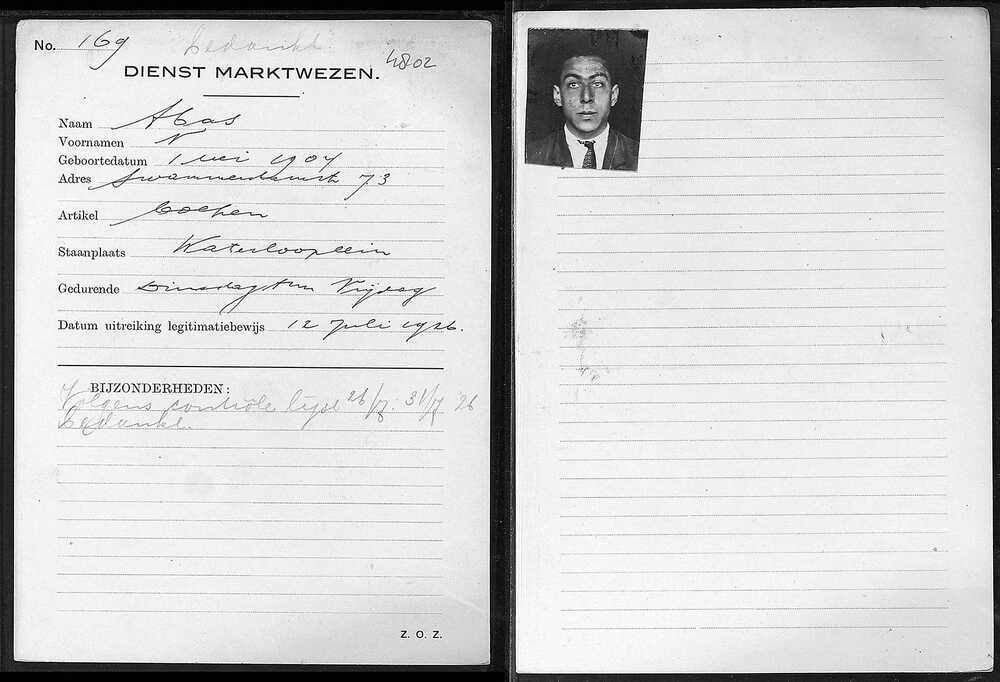 No. 169 bedankt
4802
DIENST MARKTWEZEN.
Naam Abas
Voornamen N
Geboortedatum 1 Mei 1907
Adres Swammerdamstr 73
Artikel Boeken
Staanplaats Waterlooplein
Gedurende Dinsdag t/m Vrijdag
Datum uitreiking legitimatiebewijs 12 Juli 1926.
BIJZONDERHEDEN:
Volgens contrôle lijst 26/7. 31/7 '26
bedankt.
Z. O. Z.